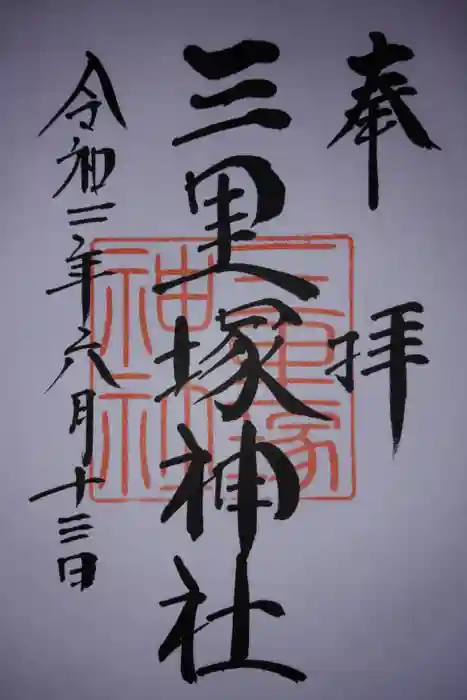 奉拝
三里塚神社
令和三年六月十三日
三里塚神社